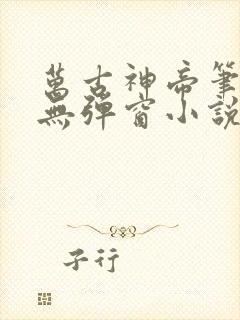 萬古神帝筆
無彈窗小說
子行